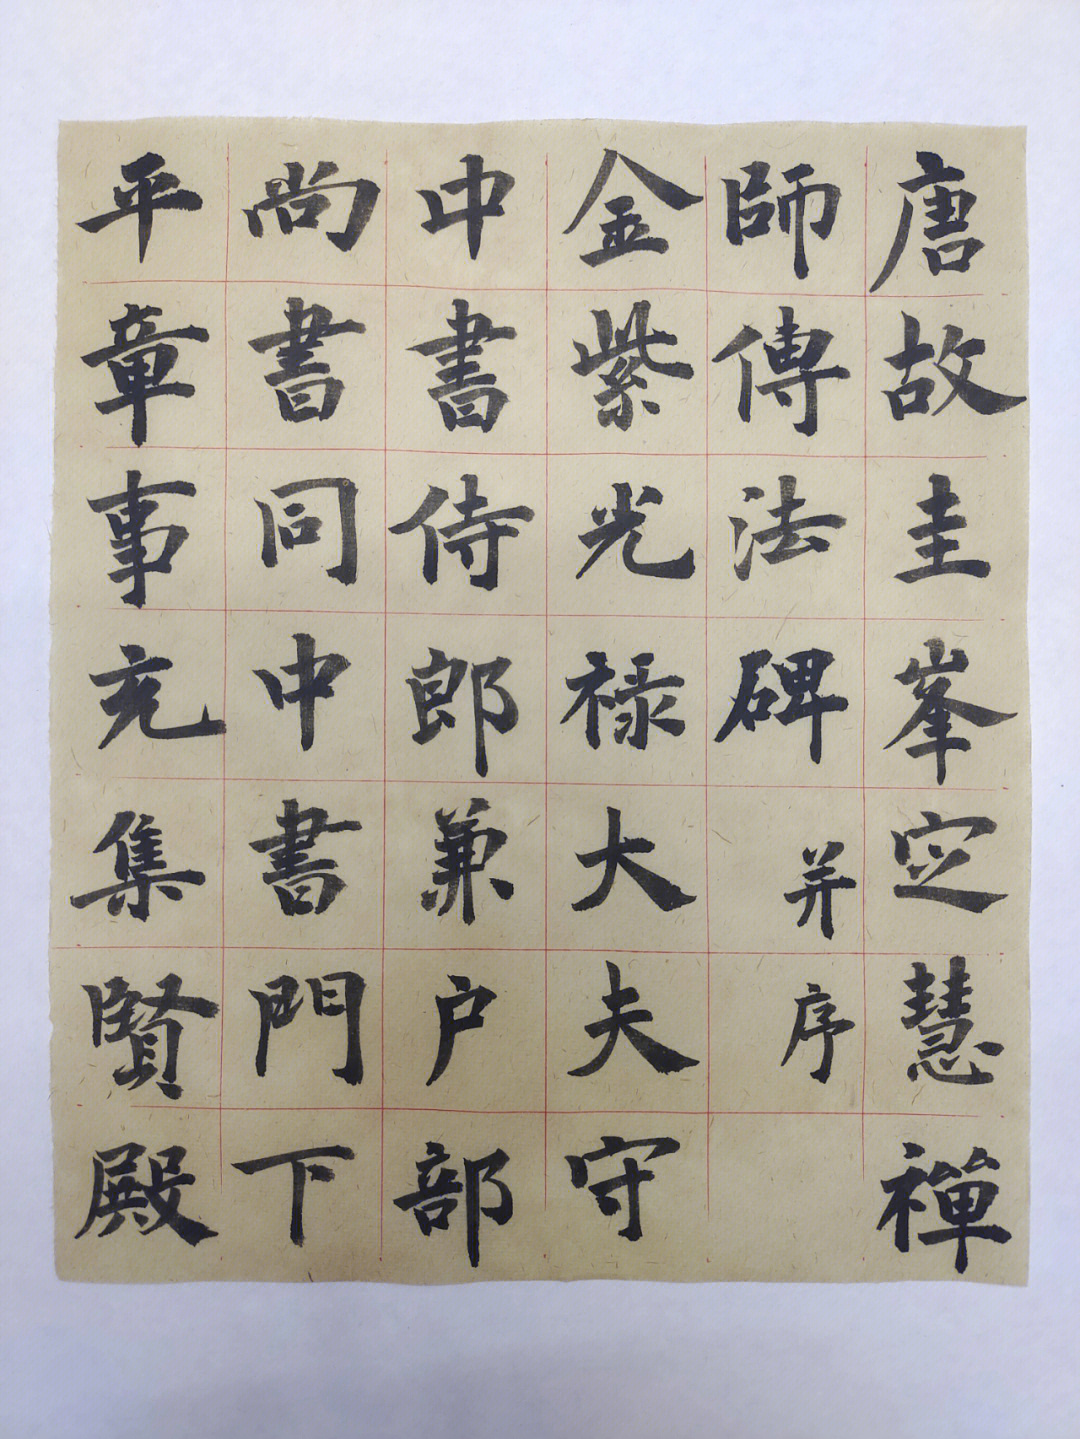 唐故圭峯定慧禪
師傳法碑并序
金紫光禄大夫守
中書侍郎兼户部
尚書同中書門下
平章事充集賢殿